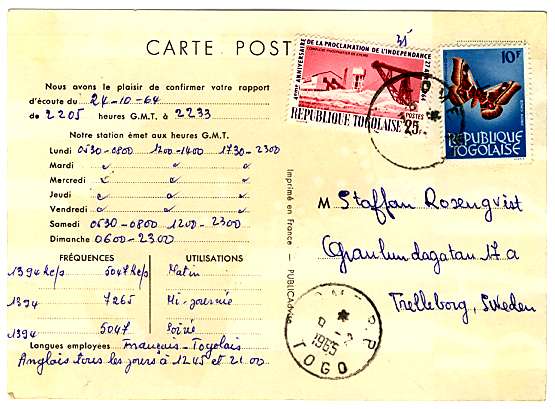 CARTE POST
35
Nous avons le plaisir de confirmer votre rapport
d'écoute du 24-10-64
de 2205 heures G.M.T. à 2233
Notre station émet aux heures G.M.T.
Lundi 0530-0800 1200-1400 1730-2300
Mardi " " "
Mercredi " " "
Jeudi " " "
Vendredi " " "
Samedi 0530-0800 1200-2300
Dimanche 0600-2300
FRÉQUENCES UTILISATIONS
1394 kc/s 5047 kc/s Matin
1394 7265 Mi-journée
1394 5047 Soirée
Langues employées Français-Togolais
Anglais tous les jours à 1245 et 21.00
Imprimé en France - PUBLICAdvise
4ème ANNIVERSAIRE DE LA PROCLAMATION DE L'INDEPENDANCE 27
POSTES
25F
REPUBLIQUE TOGOLAISE
10F
REPUBLIQUE
TOGOLAISE
M Staffan Rosenqvist
Granlundagatan 17a
Trelleborg, Sweden
1965
TOGO